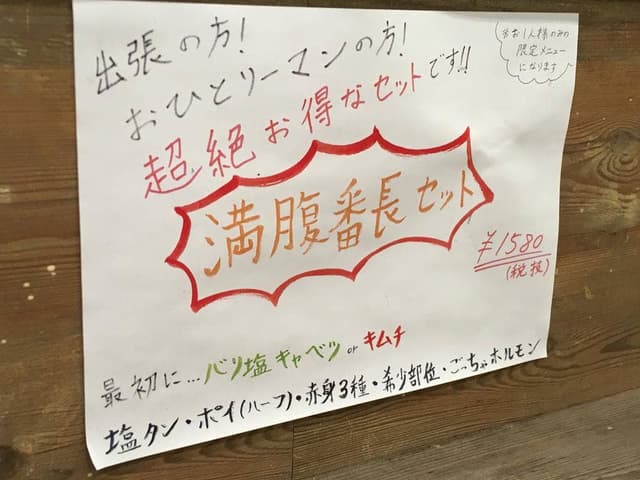 出張の方!
おひとリーマンの方!
超絶お得なセットです!!
※お1人様のみの
限定メニュー
になります
満腹番長セット
¥1580
(税抜)
最初に…バリ塩キャベツ or キムチ
塩タン・ポイ(ハーフ)・赤身3種・希少部位・ごっちゃホルモン